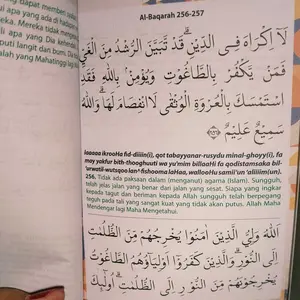 dapat memberi
apa yang ada di
Mereka tidak
apa yang Dia
langit dan bumi. Dia
yang Mahatinggi
Al-Baqarah 256-257
لَآ اِكْرَاهَ فِى الدِّيْنِۗ قَدْ تَّبَيَّنَ الرُّشْدُ مِنَ الْغَيِّ
فَمَنْ يَّكْفُرْ بِالطَّاغُوْتِ وَيُؤْمِنْۢ بِاللّٰهِ فَقَدِ
اسْتَمْسَكَ بِالْعُرْوَةِ الْوُثْقٰى لَا انْفِصَامَ لَهَاۗ وَاللّٰهُ
سَمِيْعٌ عَلِيْمٌ ﴿٢٥٦﴾
laaaaa ikrooHa fid-diiini(i), qot tabayyanar-rusydu minal-ghoyy(i), fa
may yakfur bith-thooghuuti wa yu'mim billaaHi fa qodistamsaka bil-
'urwatil-wutsqoo lan-fishooma laHaa, wallooHu samii'un 'aliiim(un).
256. Tidak ada paksaan dalam (menganut) agama (Islam). Sungguh,
telah jelas jalan yang benar dari jalan yang sesat. Siapa yang ingkar
kepada tagut dan beriman kepada Allah sungguh telah berpegang
teguh pada tali yang sangat kuat yang tidak akan putus. Allah Maha
Mendengar lagi Maha Mengetahui.
اَللّٰهُ وَلِيُّ الَّذِيْنَ اٰمَنُوْا يُخْرِجُهُمْ مِّنَ الظُّلُمٰتِ
اِلَى النُّوْرِۗ وَالَّذِيْنَ كَفَرُوْٓا اَوْلِيَاۤؤُهُمُ الطَّاغُوْتُ
يُخْرِجُوْنَهُمْ مِّنَ النُّوْرِ اِلَى الظُّلُمٰتِۗ اُولٰۤىِٕكَ